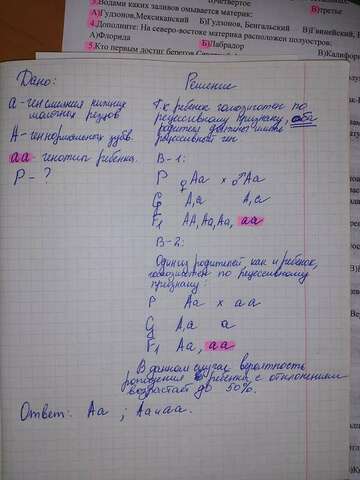 3.Водами каких заливов омывается материк:
А)Гудзонов,Мексиканский Б)Гудзонов, Бенгальский
4.Дополните: На северо-востоке материка расположен полуостров:
А)Флорида Б)Лабрадор
5.Кто первым достиг берегов
Дано:
а - ген слияния нижних
молочных резцов
А - ген нормальных зубов.
аа - генотип ребенка.
Р - ?
Решение
Т.к ребенок гомозиготен по
рецессивному признаку, оба
родителя должны иметь
рецессивный ген
В-1:
Р ♀ Аа × ♂ Аа
G А,а А,а
F1 АА, Аа, Аа, аа
В-2:
Один из родителей как и ребенок,
гомозиготен по рецессивному
признаку:
Р Аа × аа
G А,а а
F1 Аа, аа
В данном случае вероятность
рождения ребенка с отклонениями
возрастает до 50%.
Ответ: Аа ; Аа и аа.